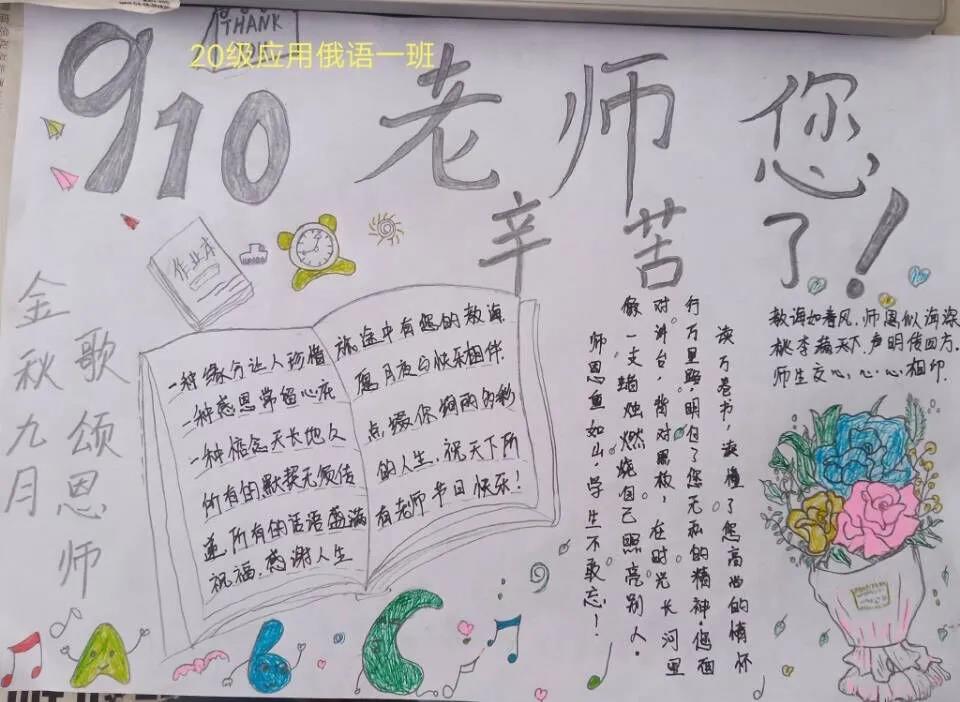 THANK
20级应用俄语一班
910 老师您
辛苦了!
作业本
金秋九月
歌颂恩师
一种缘分让人珍惜
一种感恩常留心底
一种惦念天长地久
所有的默契无须传
递,所有的话语盛满
祝福.感谢人生
旅途中有您的教诲.
快乐相伴
点缀你绚丽多彩
的人生.祝天下所
有老师节日快乐!
读万卷书,读懂了您高尚的情怀
行万里路,明白了您无私的精神.您面
对讲台,背对黑板,在时光长河里
做一支蜡烛燃烧自己照亮别人.
师恩重如山,学生不敢忘!
教诲如春风.师恩似海深
桃李满天下.声明传四方.
师生交心,心心相印.
A b C